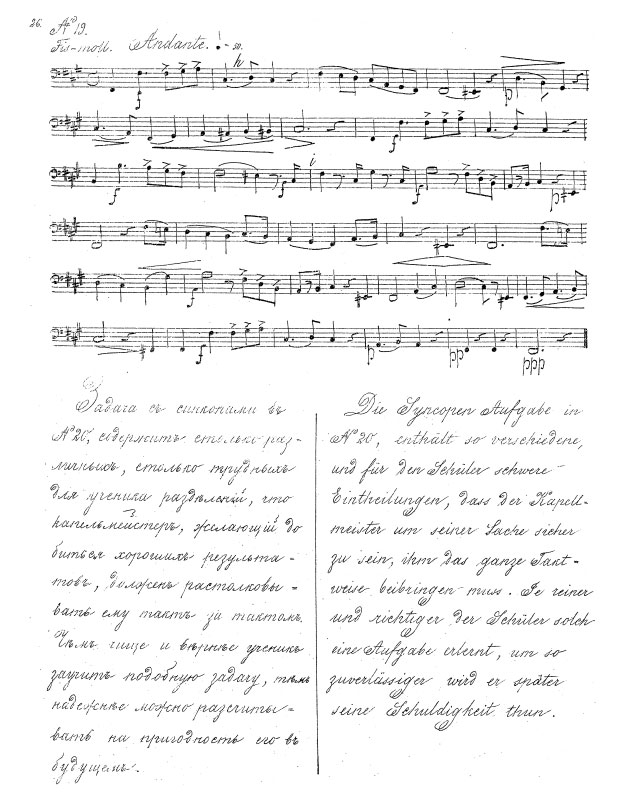 26. № 19.
Fis-moll. Andante. ♩ - 50.
h
f
p
f
i
f
f
p
f
p
pp
ppp
Задача съ синкопами въ
№ 20, содержитъ столько раз-
личныхъ, столько трудныхъ
для ученика раздѣленій, что
капельмейстеръ, желающій до
биться хорошихъ результа=
товъ, долженъ растолковы=
вать ему тактъ за тактомъ.
Чѣмъ чище и вѣрнѣе ученикъ
заучитъ подобную задачу, тѣмъ
надежнѣе можно разсчиты=
вать на пригодность его въ
будущемъ.
Die Syncopen Aufgabe in
№ 20, enthält so verschiedene,
und für den Schüler schwere
Eintheilungen, dass der Kapell-
meister um seiner Sache sicher
zu sein, ihm das ganze Takt-
weise beibringen muss. Je reiner
und richtiger der Schüler solch
eine Aufgabe erlernt, um so
zuverlässiger wird er später
seine Schuldigkeit thun.